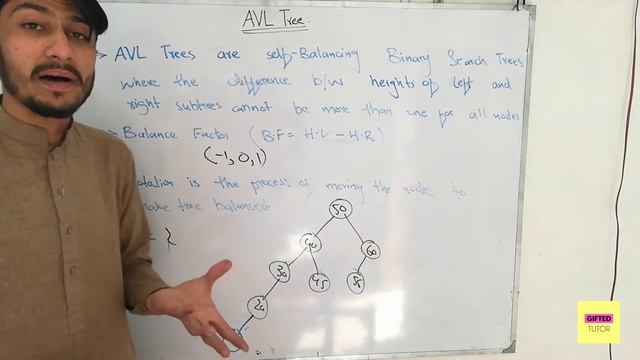 AVL Tree:
AVL Trees are self-Balancing Binary Search Trees
where the difference b/w heights of left and
right subtrees cannot be more than one for all nodes
Balance Factor (B.F = H.L - H.R)
(-1, 0, 1)
otation is the process of moving the nodes to
make tree balanced
50
40
60
30
45
55
20
GIFTED
TUTOR